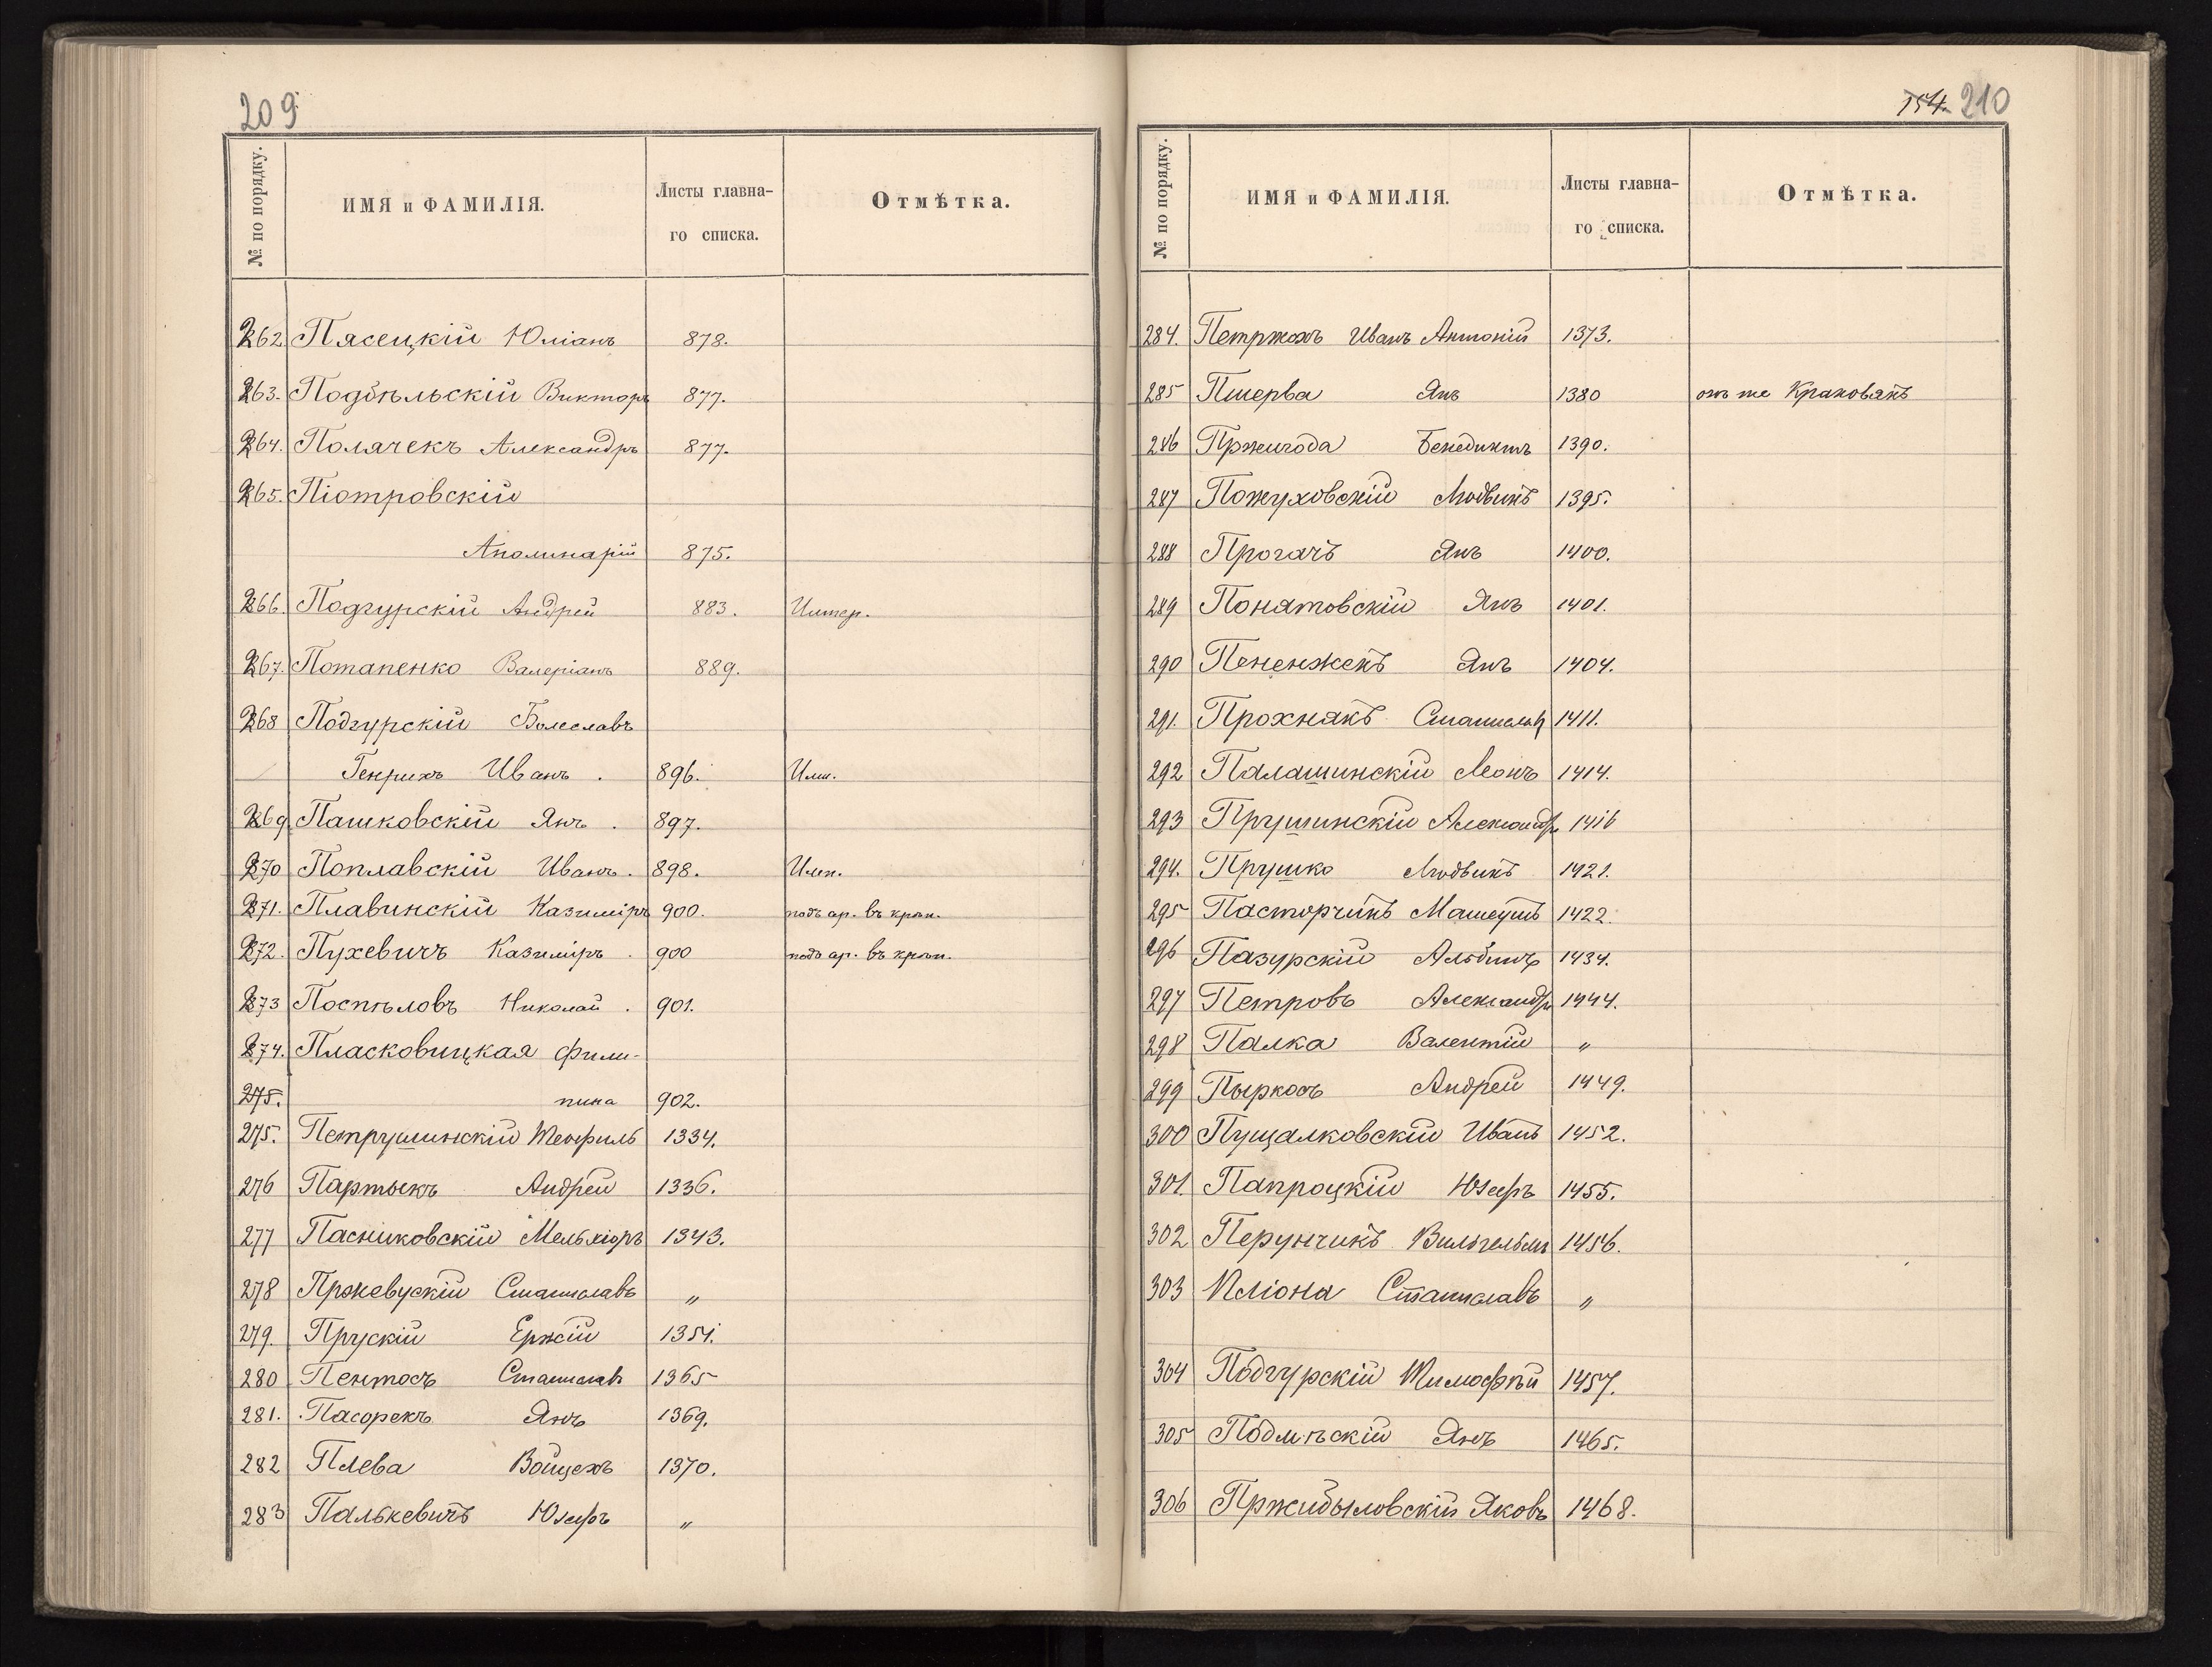 209
№ по порядку.
ИМЯ и ФАМИЛІЯ.
Листы главна-
го списка.
Отмѣтка.
262 Пясецкій Юліанъ 878.
263. Подбѣльскій Викторъ 877.
264. Полячекъ Александръ 877.
265. Піотровскій
Аполинарій 875.
266. Подгурскій Андрей 883.
267. Потапенко Валеріанъ 889.
268 Подгурскій Болеславъ
Генрихъ Иванъ. 896.
269. Пашковскій Янъ. 897.
270 Поплавскій Иванъ. 898.
271. Плавинскій Казиміръ 900. подъ ар. въ крѣп.
272. Пухевичъ Казиміръ. 900 подъ ар. въ крѣп.
273 Поспѣловъ Николай. 901.
274. Пласковицкая Фили-
275. пина 902.
275. Петрушинскій Теофиль 1334.
276 Партыкъ Андрей 1336.
277 Пасниковскій Мельхіоръ 1343.
278 Пржевускій Станиславъ "
279. Прускій Ержій 1351.
280 Пентосъ Станиславъ 1365
281. Пасорекъ Янъ 1369.
282 Плева Войцехъ 1370.
283 Палькевичъ Юзефъ "
154. 210
№ по порядку.
ИМЯ и ФАМИЛІЯ.
Листы главна-
го списка.
Отмѣтка.
284. Петржохъ Иванъ Антоній 1373.
285 Пшерва Янъ 1380 онъ же Краковякъ
286 Пржигода Бенедиктъ 1390.
287 Пожуховскій Людвикъ 1395.
288 Прогачъ Янъ 1400.
289 Понятовскій Янъ 1401.
290 Пененжекъ Янъ 1404.
291. Прохнякъ Станиславъ 1411.
292 Палашинскій Леонъ 1414.
293 Прушинскій Александръ 1416
294. Прушко Людвикъ 1421.
295 Пасторчикъ Матеушъ 1422.
296 Пазурскій Альбинъ 1434.
297 Петровъ Александръ 1444.
298 Палка Валентій "
299 Пыркошъ Андрей 1449.
300 Пущалковскій Иванъ 1452.
301. Папроцкій Юзефъ 1455.
302 Перунчикъ Вильгельмъ 1456.
303 Пліона Станиславъ "
304 Подгурскій Тимофѣй 1457.
305 Подлѣскій Янъ 1465.
306 Пржибыловскій Яковъ 1468.